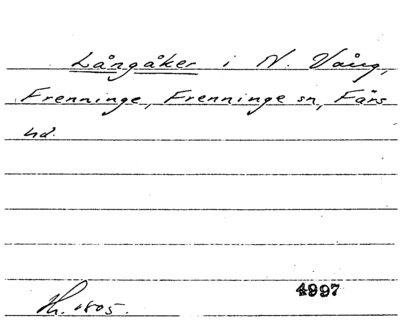 Långåker i N. Vång,
Frenninge, Frenninge sn, Färs
hd.
4997
Hr. 1805.